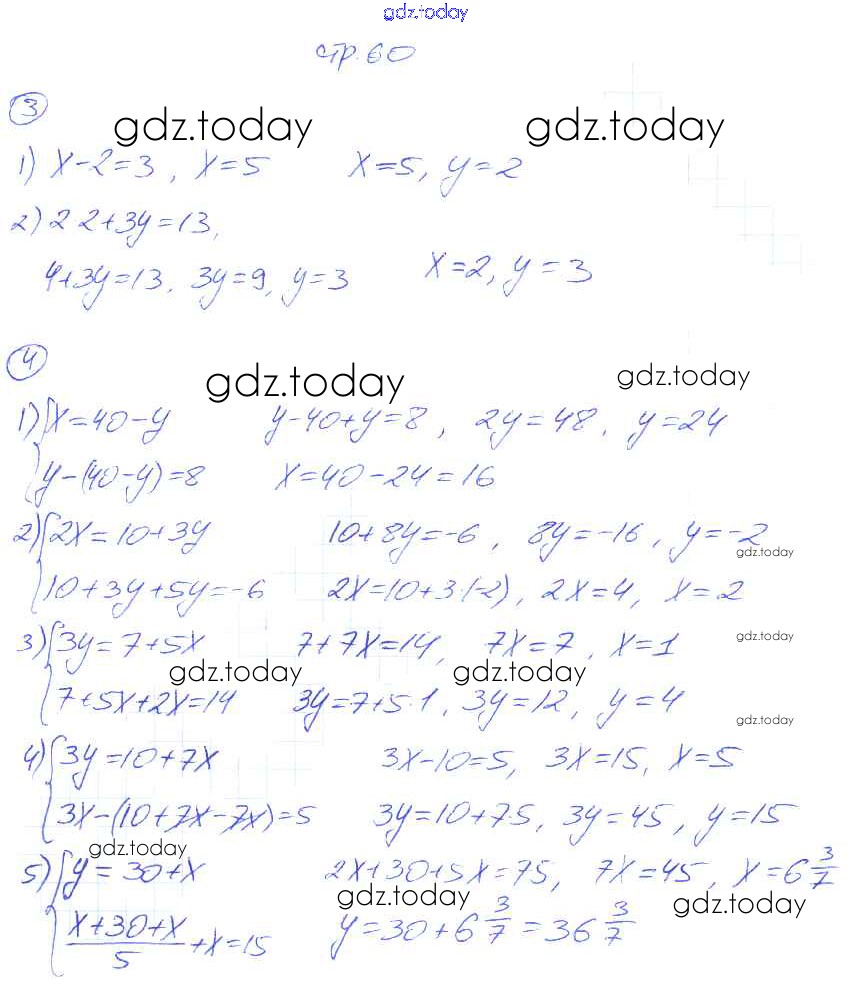 gdz.today
стр. 60
3
gdz.today gdz.today
1) x-2=3, x=5 x=5, y=2
2) 2·2+3y=13,
4+3y=13, 3y=9, y=3 x=2, y=3
4
gdz.today gdz.today
1) {x=40-y y-40+y=8, 2y=48, y=24
y-(40-y)=8 x=40-24=16
2) {2x=10+3y 10+8y=-6, 8y=-16, y=-2
gdz.today
10+3y+5y=-6 2x=10+3·(-2), 2x=4, x=2
3) {3y=7+5x 7+7x=14, 7x=7, x=1
gdz.today
gdz.today gdz.today
7+5x+2x=14 3y=7+5·1, 3y=12, y=4
gdz.today
4) {3y=10+7x 3x-10=5, 3x=15, x=5
3x-(10+7x-7x)=5 3y=10+7·5, 3y=45, y=15
gdz.today
5) {y=30+x 2x+30+5x=75, 7x=45, x=6 3/7
gdz.today gdz.today
(x+30+x)/5+x=15 y=30+6 3/7=36 3/7